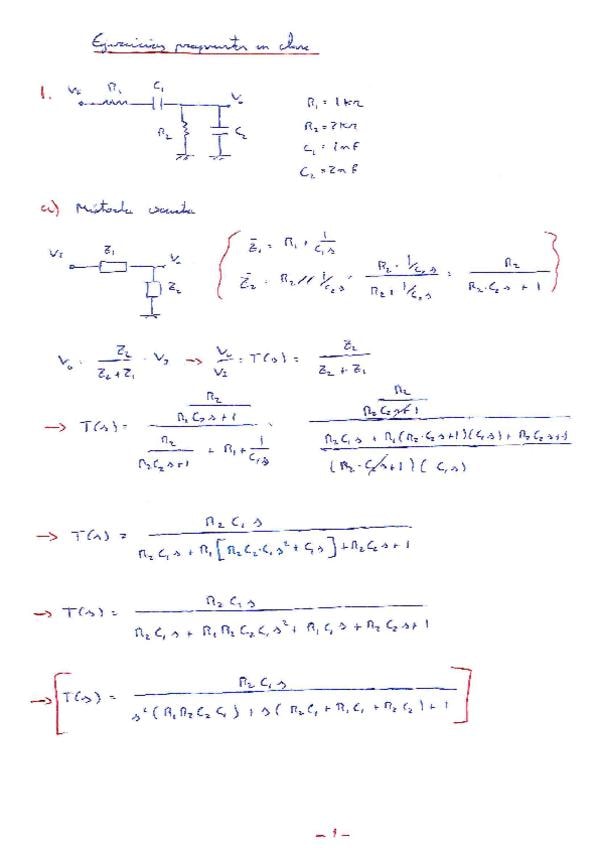 Ejercicios propuestos en clase
1.
Vi R₁ C₁ Vo
R₂ C₂
R₁ = 1 kΩ
R₂ = 2 kΩ
C₁ = 1 nF
C₂ = 2 nF
a) Método
Z₁
Z₂
Z̄₁ = R₁ + 1/(C₁s)
Z̄₂ = R₂ // 1/(C₂s) = (R₂ · 1/(C₂s))/(R₂ + 1/(C₂s)) = R₂/(R₂·C₂s + 1)
V₀ = Z₂/(Z₂+Z₁) · Vi → V₀/Vi = T(s) = Z₂/(Z₂ + Z₁)
→ T(s) = (R₂/(R₂C₂s+1))/(R₂/(R₂C₂s+1) + R₁ + 1/(C₁s)) = (R₂/(R₂C₂s+1))/((R₂C₁s + R₁(R₂·C₂s+1)(C₁s) + R₂C₂s+1)/((R₂·C₂s+1)(C₁s)))
→ T(s) = R₂C₁s/(R₂C₁s + R₁[R₂C₂·C₁s² + C₁s] + R₂C₂s + 1)
→ T(s) = R₂C₁s/(R₂C₁s + R₁R₂C₂C₁s² + R₁C₁s + R₂C₂s + 1)
→ [T(s) = R₂C₁s/(s²(R₁R₂C₂C₁) + s(R₂C₁ + R₁C₁ + R₂C₂) + 1)]
- 1 -